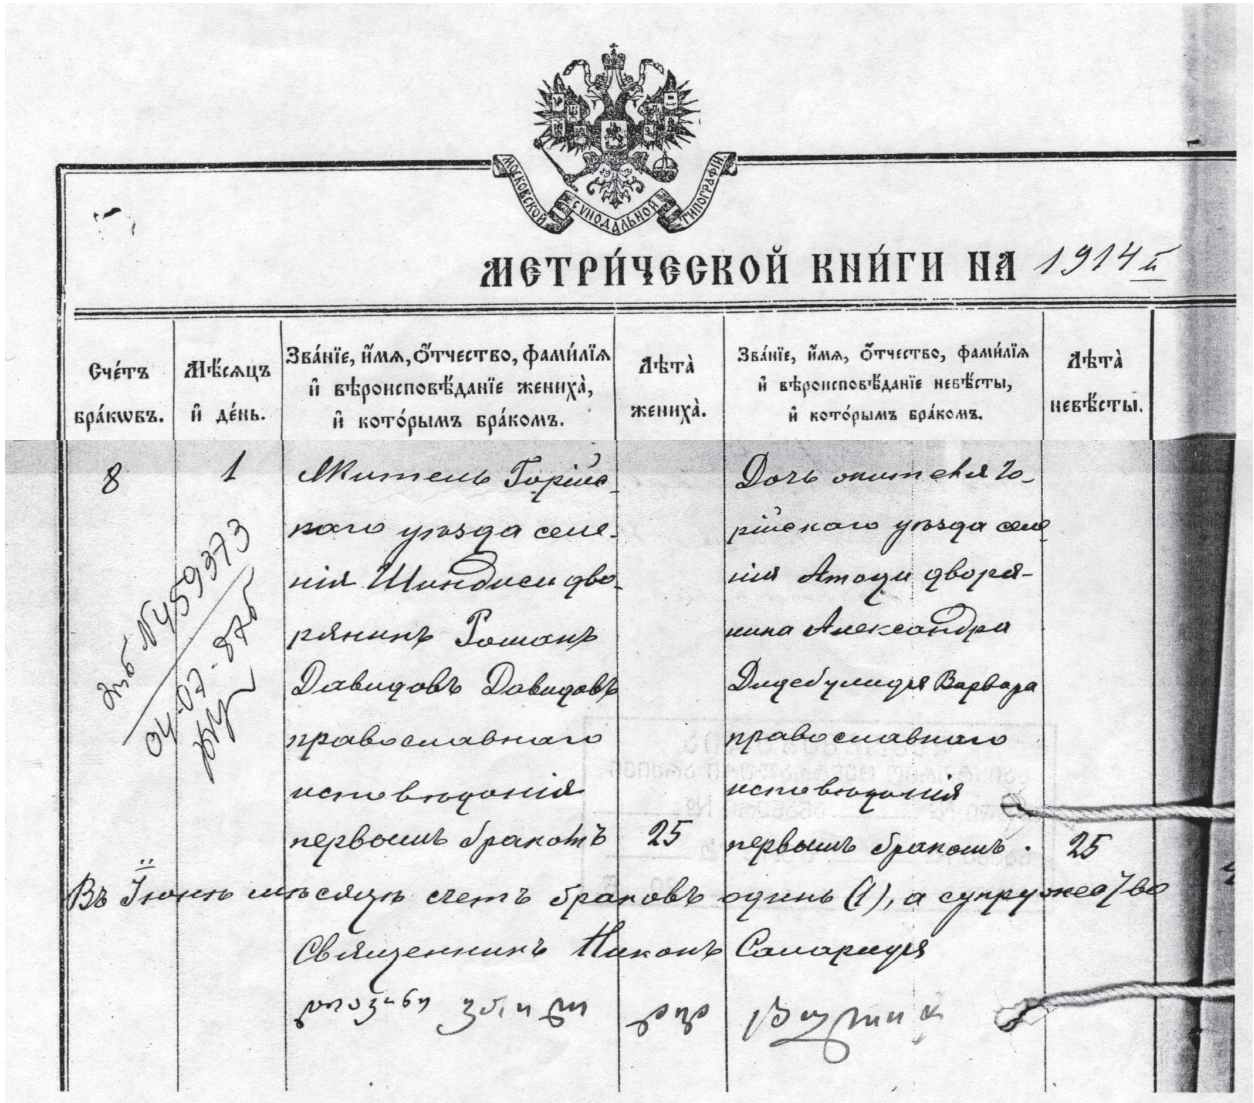 МОСКОВСКОЙ СѴНОДАЛЬНОЙ ТИПОГРАФІИ.
МЕТРИ́ЧЕСКОЙ КНИ́ГИ НА 1914 г.
Сче́тъ бра́кωвъ.
Мѣ́сяцъ и҆ де́нь.
Зва́нїе, и҆́мѧ, ѻ҆́тчество, фами́лїѧ
и҆ вѣроисповѣ́данїе жениха̀,
и҆ кото́рымъ бра́комъ.
Лѣта̀ жениха̀.
Зва́нїе, и҆́мѧ, ѻ҆́тчество, фами́лїѧ
и҆ вѣроисповѣ́данїе невѣ́сты,
и҆ кото́рымъ бра́комъ.
Лѣта̀ невѣ́сты.
8
1
Житель Горійс-
каго уѣзда селе-
нія Шиндиси дво-
рянинъ Романъ
Давидовъ Давидовъ
православнаго
исповѣданія
первымъ бракомъ
25
Дочь жителя Го-
рійскаго уѣзда селе
нія Атоци дворя-
нина Александра
Дидебулидзе Варвара
православнаго
исповѣданія
первымъ бракомъ.
25
Въ Іюнѣ мѣсяцѣ счетъ браковъ одинъ (1), а супружество
Священникъ Никонъ Самаридзе
№459373
04-02-87